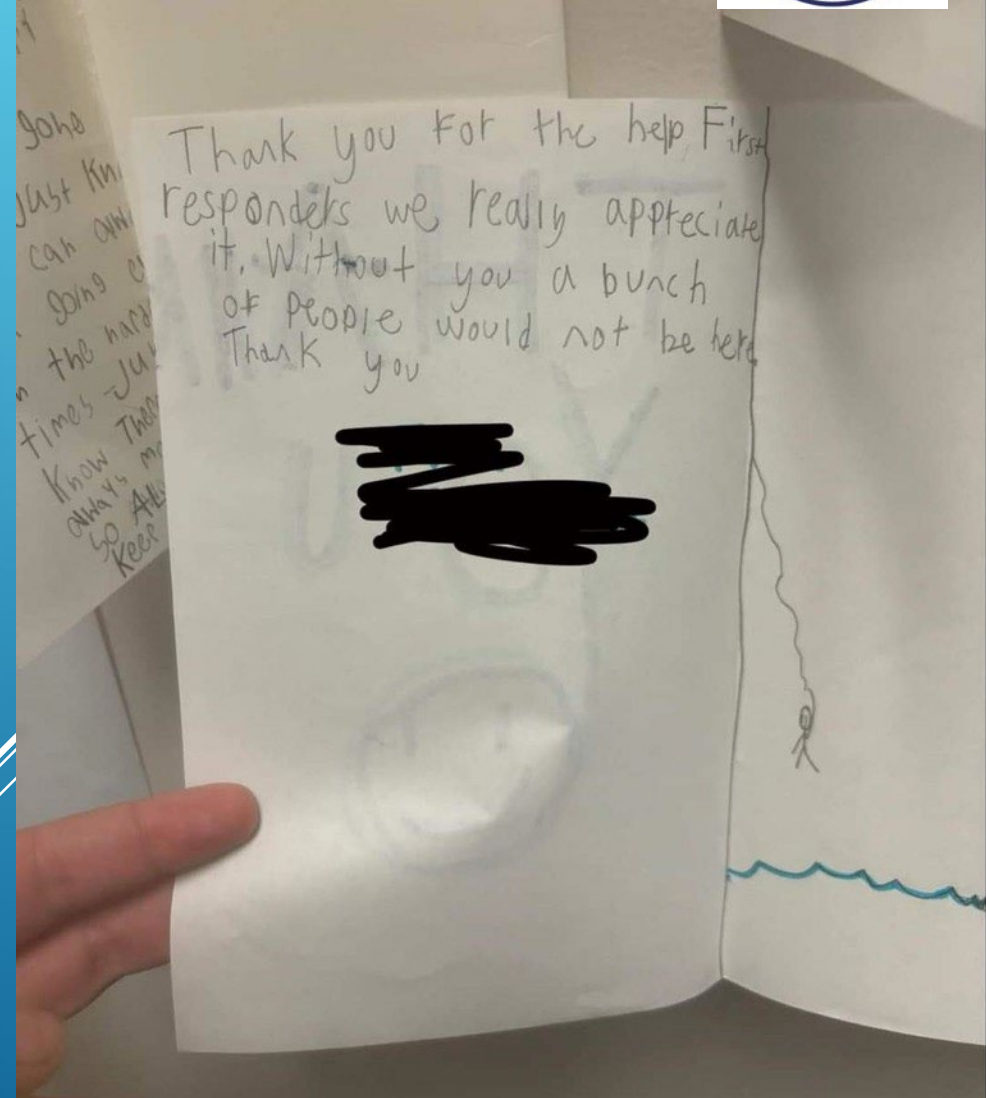 gone
just
can
going
the hard
times
Know
always
so
Keep
Thank you For the help, First
responders we really appreciate
it. Without you a bunch
of people would not be here
Thank you
THANK
YOU